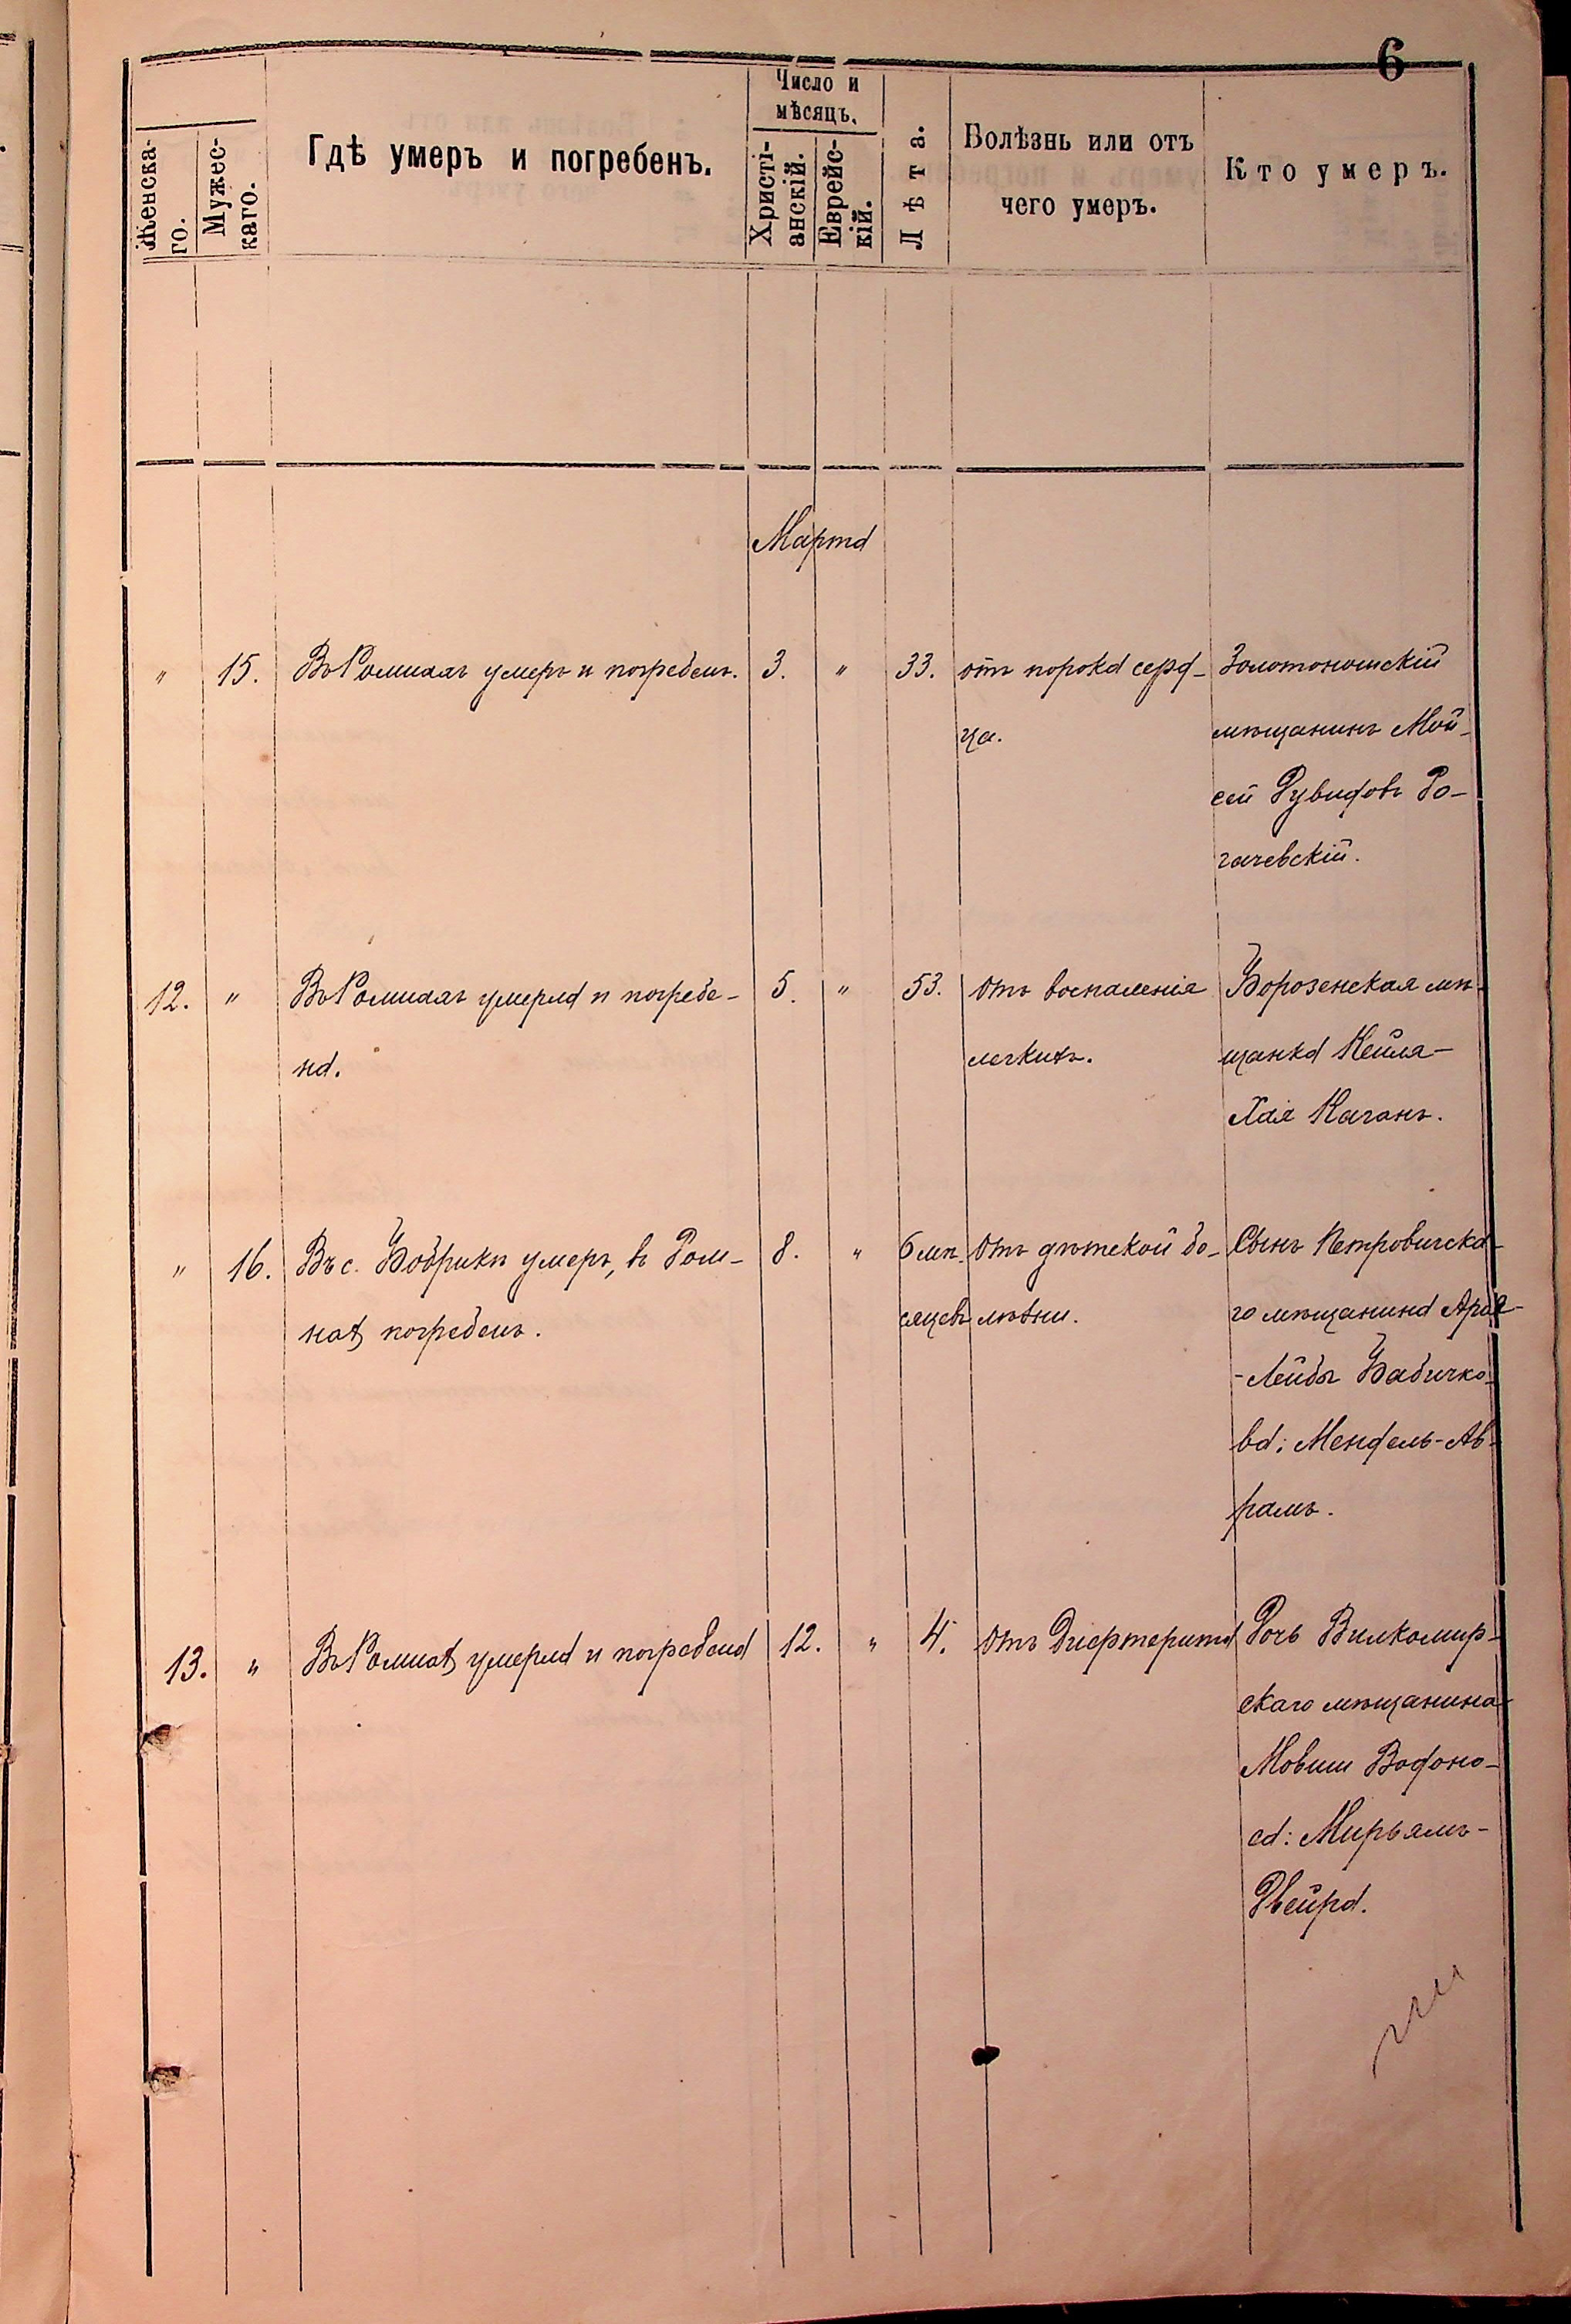 6
Женска-
го.
Мужес-
каго.
Гдѣ умеръ и погребенъ.
Число и
мѣсяцъ.
Христі-
анскій.
Еврейс-
кій.
Лѣта.
Болѣзнь или отъ
чего умеръ.
Кто умеръ.
Марта
" 15. Въ Ромнахъ умеръ и погребенъ. 3. " 33. отъ порока серд- Золотоношскій
ца. мѣщанинъ Мой-
сей Рувидовъ Ро-
гачевскій.
12. " Въ Ромнахъ умерла и погребе- 5. " 53. отъ воспаленія Борозенская мѣ-
на. легкихъ. щанка Кейля-
Хая Каганъ.
" 16. Въ с. Бобрикѣ умеръ, въ Ром- 8. " 6 мѣ- отъ дѣтской бо- Сынъ Петровичска-
нахъ погребенъ. сяцевъ лѣзни. го мѣщанина Арья-
-Лейбы Бабичко-
ва: Мендель-Ав-
рамъ.
13. " Въ Ромнахъ умерла и погребена 12. " 4. отъ Дифтерита Дочь Вилкомир-
скаго мѣщанина
Мовши Водоно-
са: Мирьямъ-
Двейра.